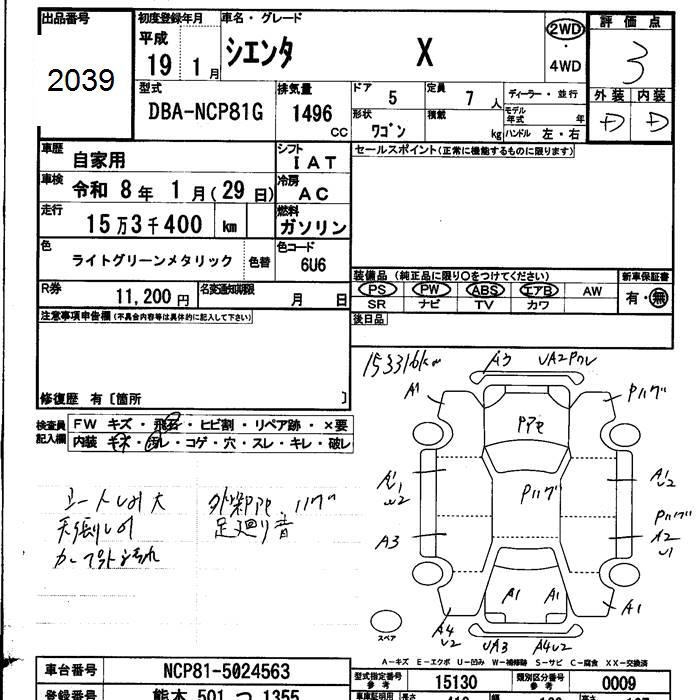 出品番号 初度登録年月 車名・グレード 評価点
2039 平成 19年 1月 シエンタ X 2WD・4WD 3
型式 排気量 ドア 5 定員 7人 ディーラー・並行 外装 内装
DBA-NCP81G 1496cc 形状 ワゴン 積載 kg モデル年式 年 ハンドル 左・右 D D
車歴 自家用 シフト IAT セールスポイント(正常に機能するものに限ります)
車検 令和 8年 1月(29日) 冷房 AC
走行 15万3千400 km 燃料 ガソリン
色 ライトグリーンメタリック 色替 色コード 6U6
装備品 (純正品に限り○をつけてください) 新車保証書
R券 11,200円 名変通知期限 月 日 PS PW ABS エアB AW 有・無
SR ナビ TV カワ
注意事項申告欄(不具合内容等は具体的に記入して下さい) 後日品
153316km A3 UA2 Pウレ
A1 Pハゲ
修復歴 有 [箇所 ]
検査員記入欄 FW キズ・飛石・ヒビ割・リペア跡・×要
内装 キズ・汚レ・コゲ・穴・スレ・キレ・破レ
Pアセ
Pハゲ
A1 U1 U2 A1 U2
シートしめ大 外装アセ、ハゲ
天張しめ 足廻り音
Pハゲ
A3 A2 U1
A1 A1 A1
A4 U2 UA3 A4U2
スペア
A-キズ E-エクボ U-凹み W-補修跡 S-サビ C-腐食 XX-交換済
車台番号 NCP81-5024563 型式指定番号 参考 15130 類別区分番号 参考 0009
登録番号 熊本 501 つ 1355 車庫証明用 長さ